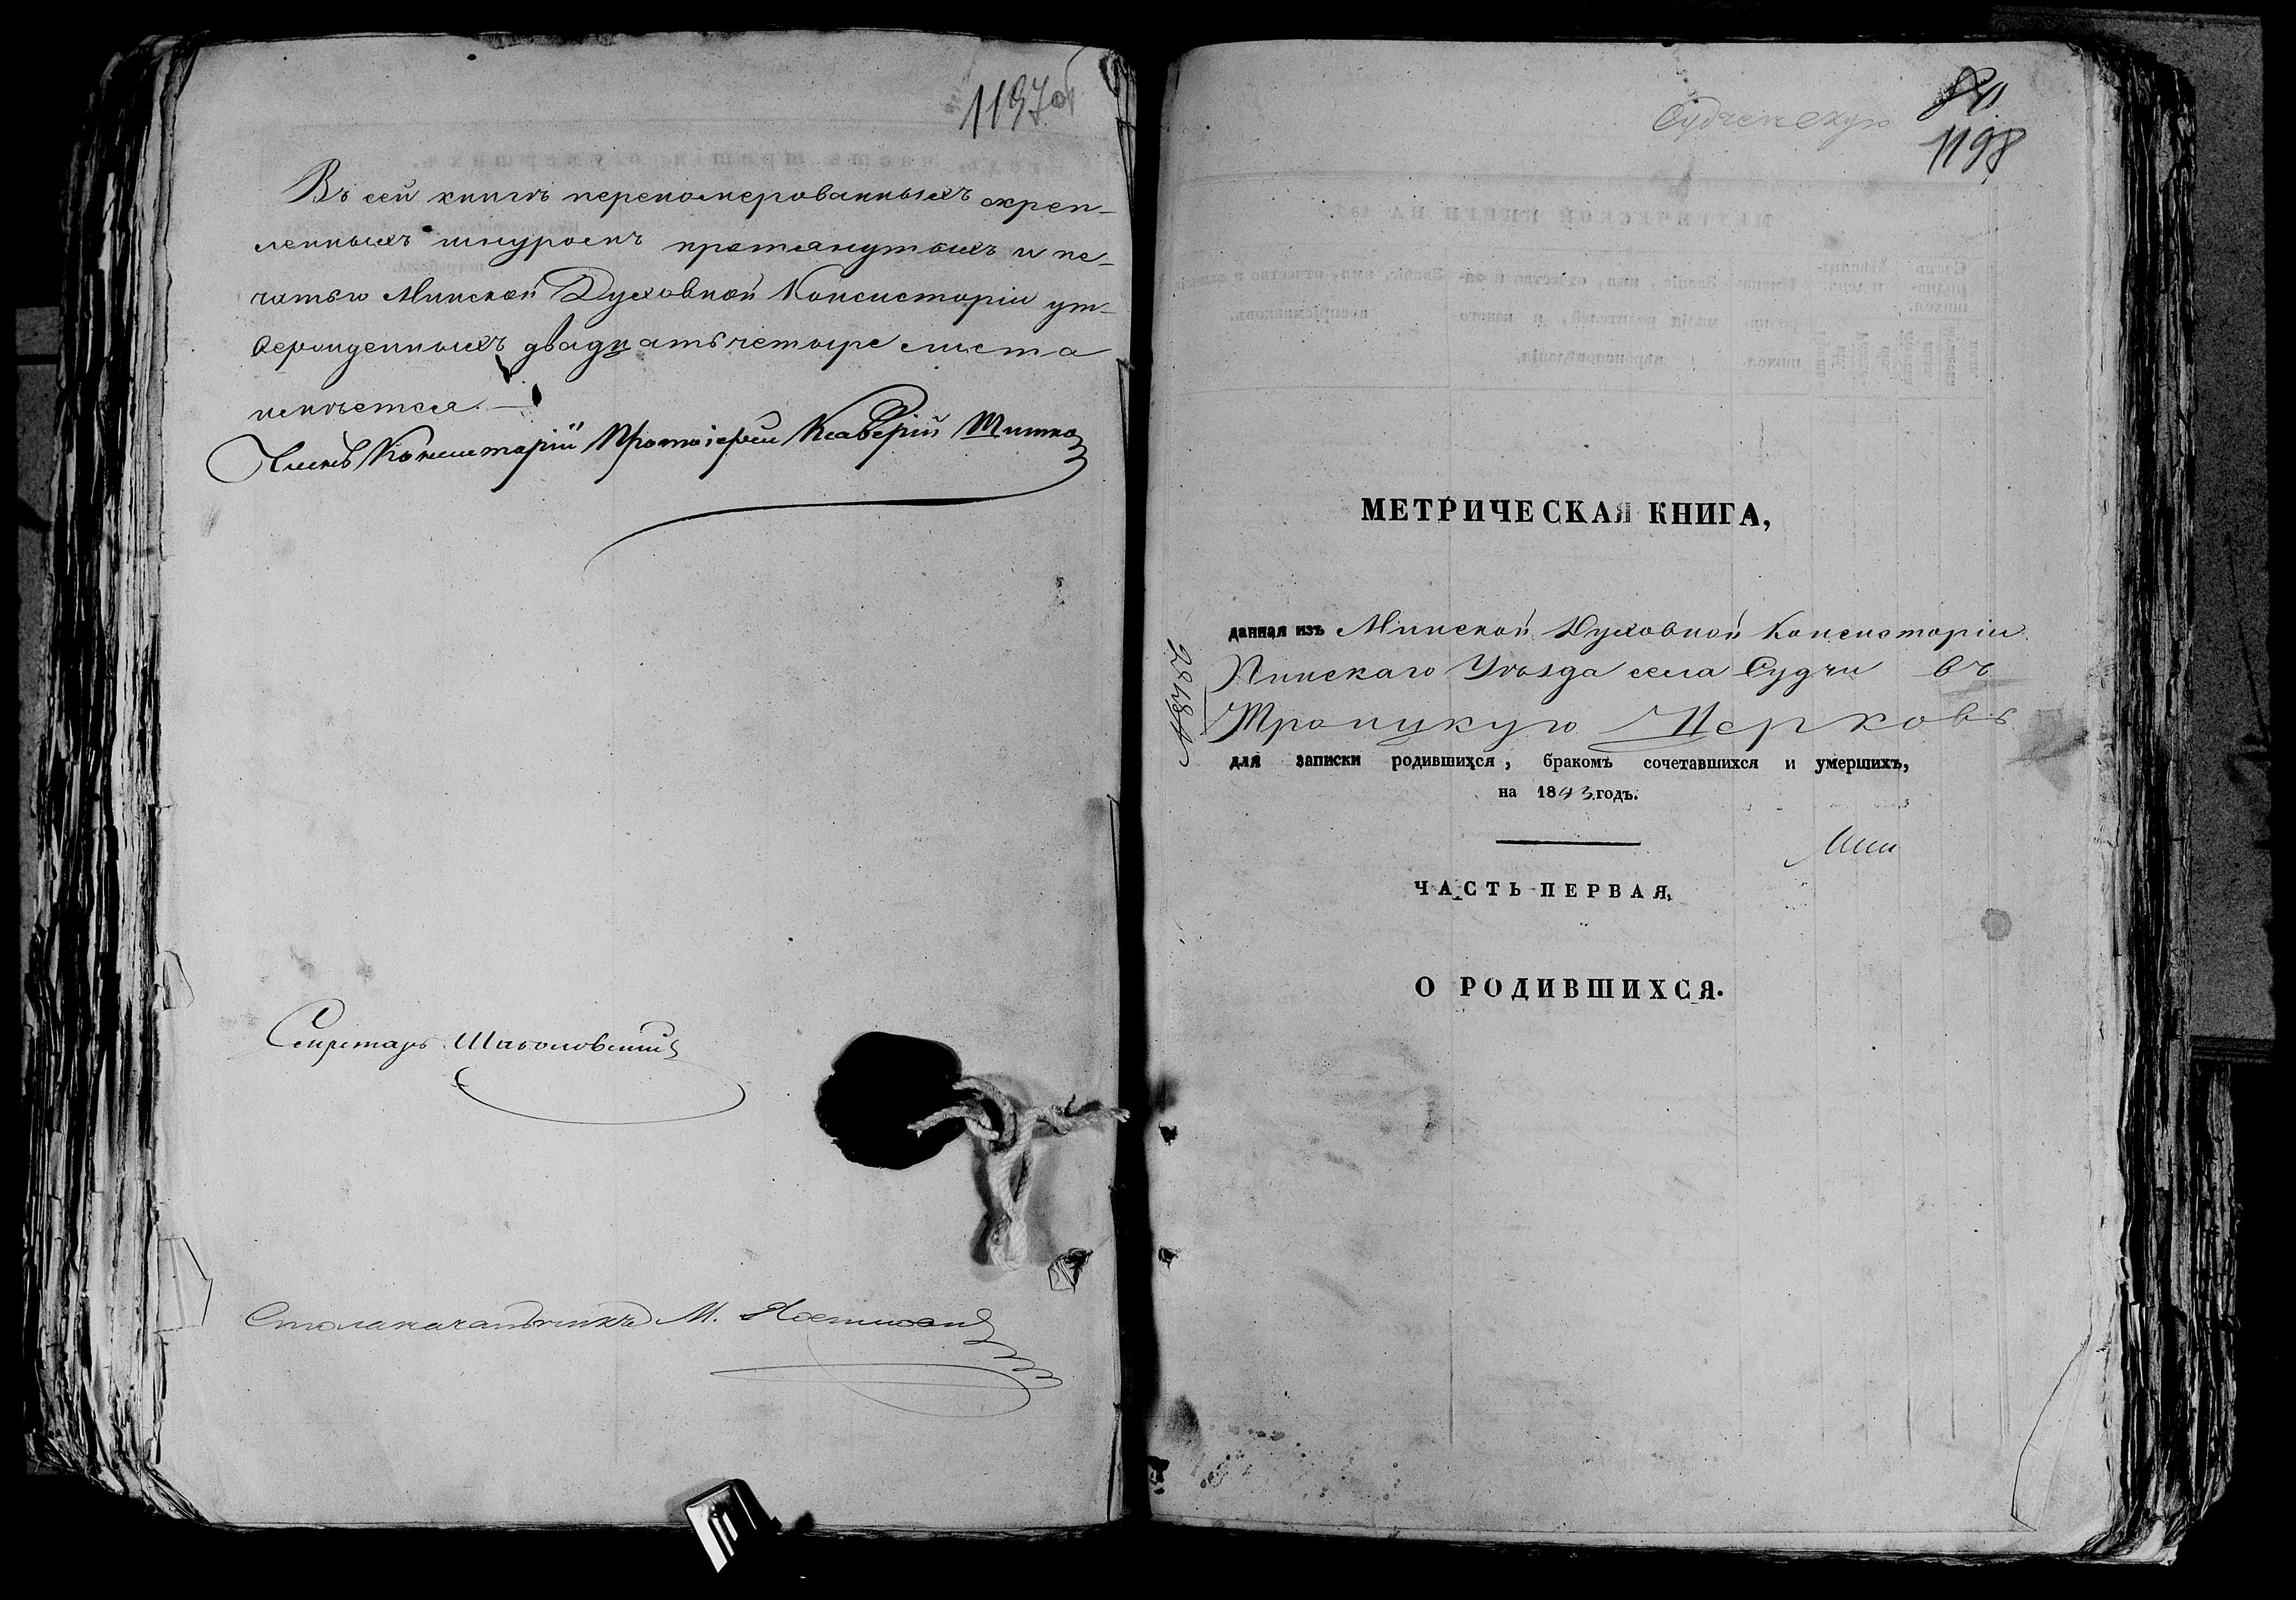 1197об
Въ сей книгѣ перенумерованныхъ скреп-
ленныхъ шнуромъ протянутыхъ и пе-
чатью Минской Духовной Консисторіи ут-
вержденныхъ двадцать четыре листа
имѣется.
Членъ Консисторіи Протоіерей Ксаверій
Секретарь
Столоначальникъ М.
Судченскую
1198
МЕТРИЧЕСКАЯ КНИГА,
данная изъ Минской Духовной Консисторіи
Пинскаго Уѣзда села Судчи въ
Троицкую Церковь
для записки родившихся, бракомъ сочетавшихся и умершихъ,
на 1843 годъ.
ЧАСТЬ ПЕРВАЯ,
О РОДИВШИХСЯ.